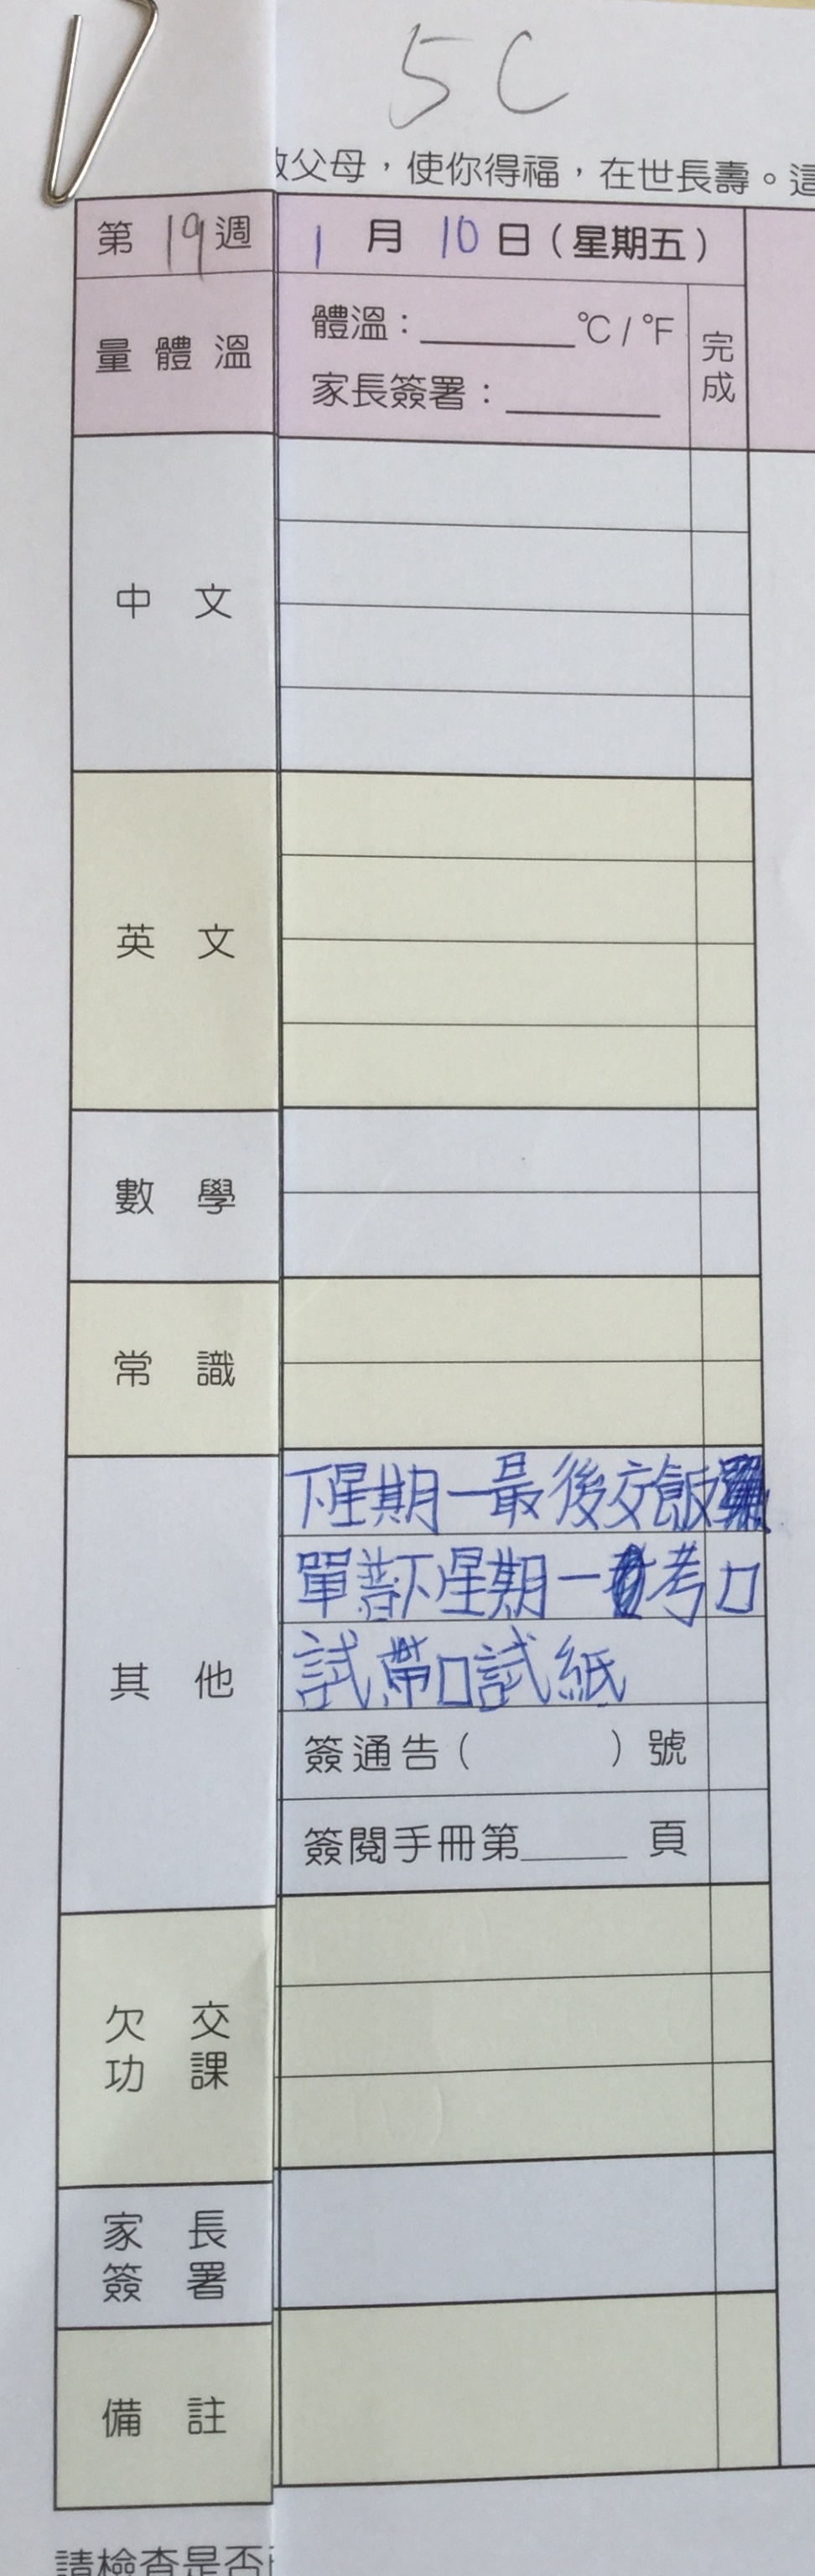 5C
父母，使你得福，在世長壽。這
第 19 週 1 月 10 日（星期五）
量體溫
體溫：______°C / °F
家長簽署：______
完成
中文
英文
數學
常識
其他
下星期一最後交飯
單普下星期一考口
試帶口試紙
簽通告（ ）號
簽閱手冊第____頁
欠交
功課
家長
簽署
備註
請檢查是否